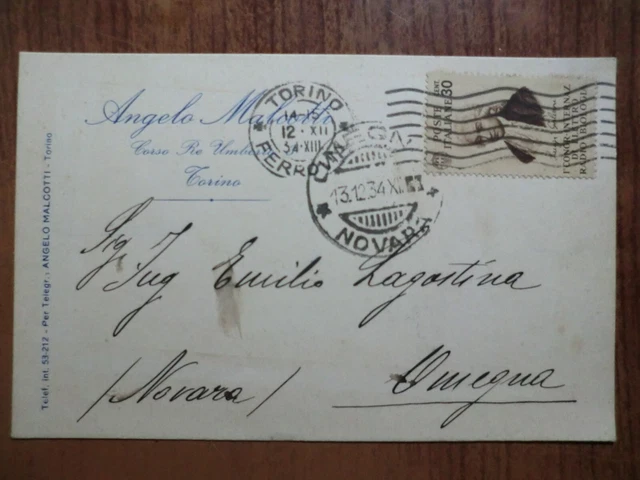 Angelo Malcotti
Corso Re Umberto
Torino
TORINO
12 · XII
34 · XIII
FERR
OMEGNA
13.12.34 XI
NOVARA
POSTE
ITALIANE 30
I CONGR. INTERNAZ.
RADIOBIOLOGIA
Sig
Ing Emilio Lagostina
Omegna
(Novara)
Telef. int. 53-212 - Per Telegr.: ANGELO MALCOTTI - Torino